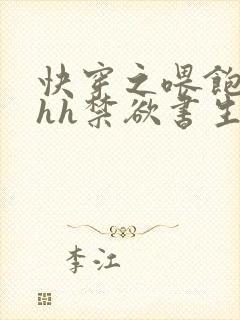 快穿之喂飽
hh禁欲書生
李江